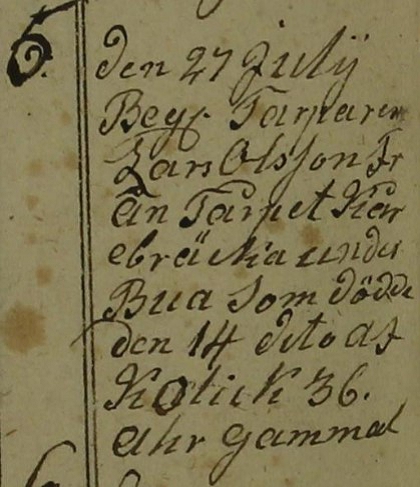 6. den 27 Julij
Begr. Tarparen
Lars Olsson Fr
ån Tarpet Kär
ebräckia under
Bua som dödde
den 14 dito af
Kolick 36.
ahr gammal